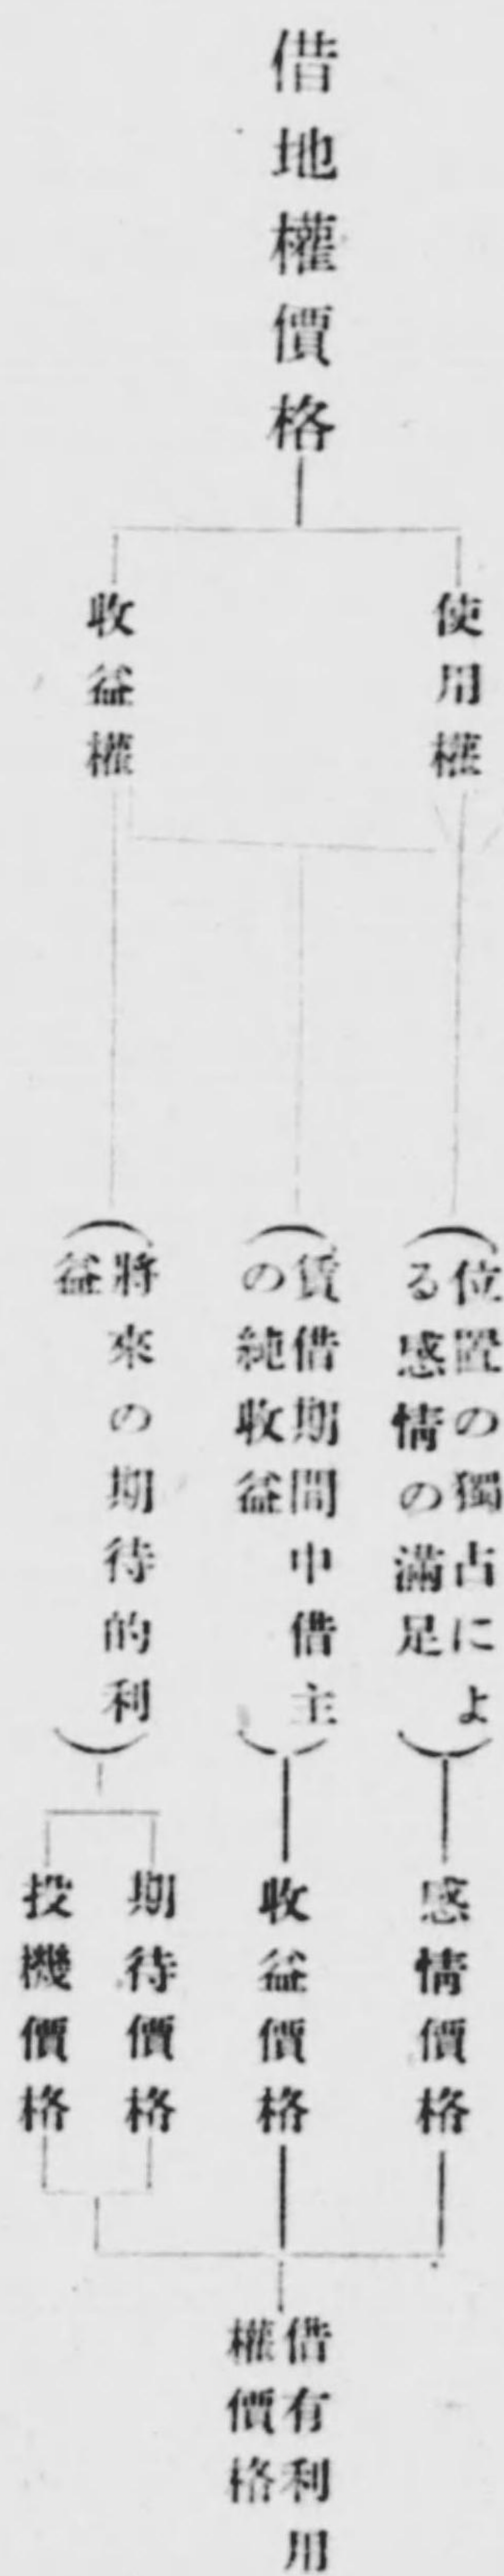 借地權價格
使用權
收益權
(位置の獨占によ
る感情の滿足)
(賃借期間中借主
の純收益)
(將來の期待的利
益)
感情價格
收益價格
期待價格
投機價格
借有利用
權價格